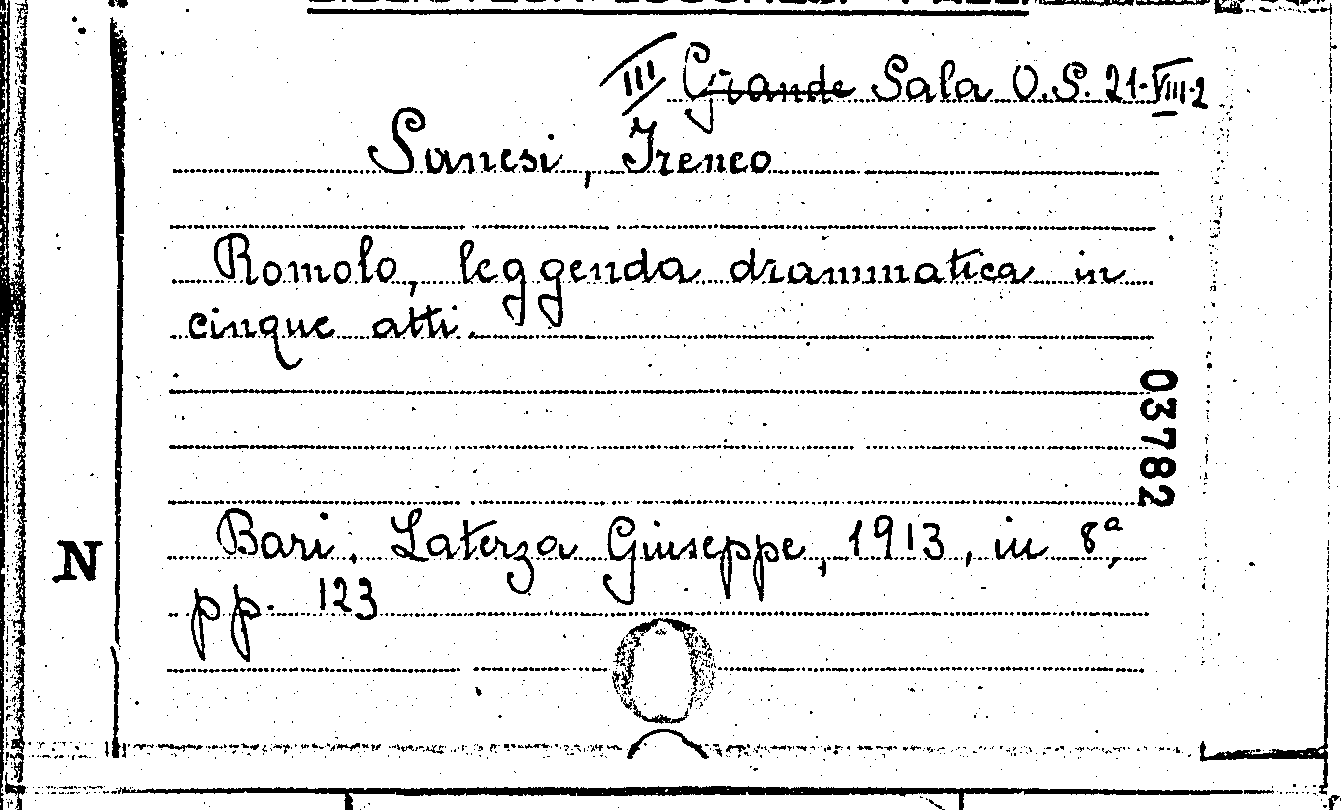 III ~~Grande~~ Sala O.S. 21-VIII-2
Sanesi, Ireneo
Romolo, leggenda drammatica in
cinque atti.
03782
Bari. Laterza Giuseppe, 1913, in 8ª,
pp. 123
N